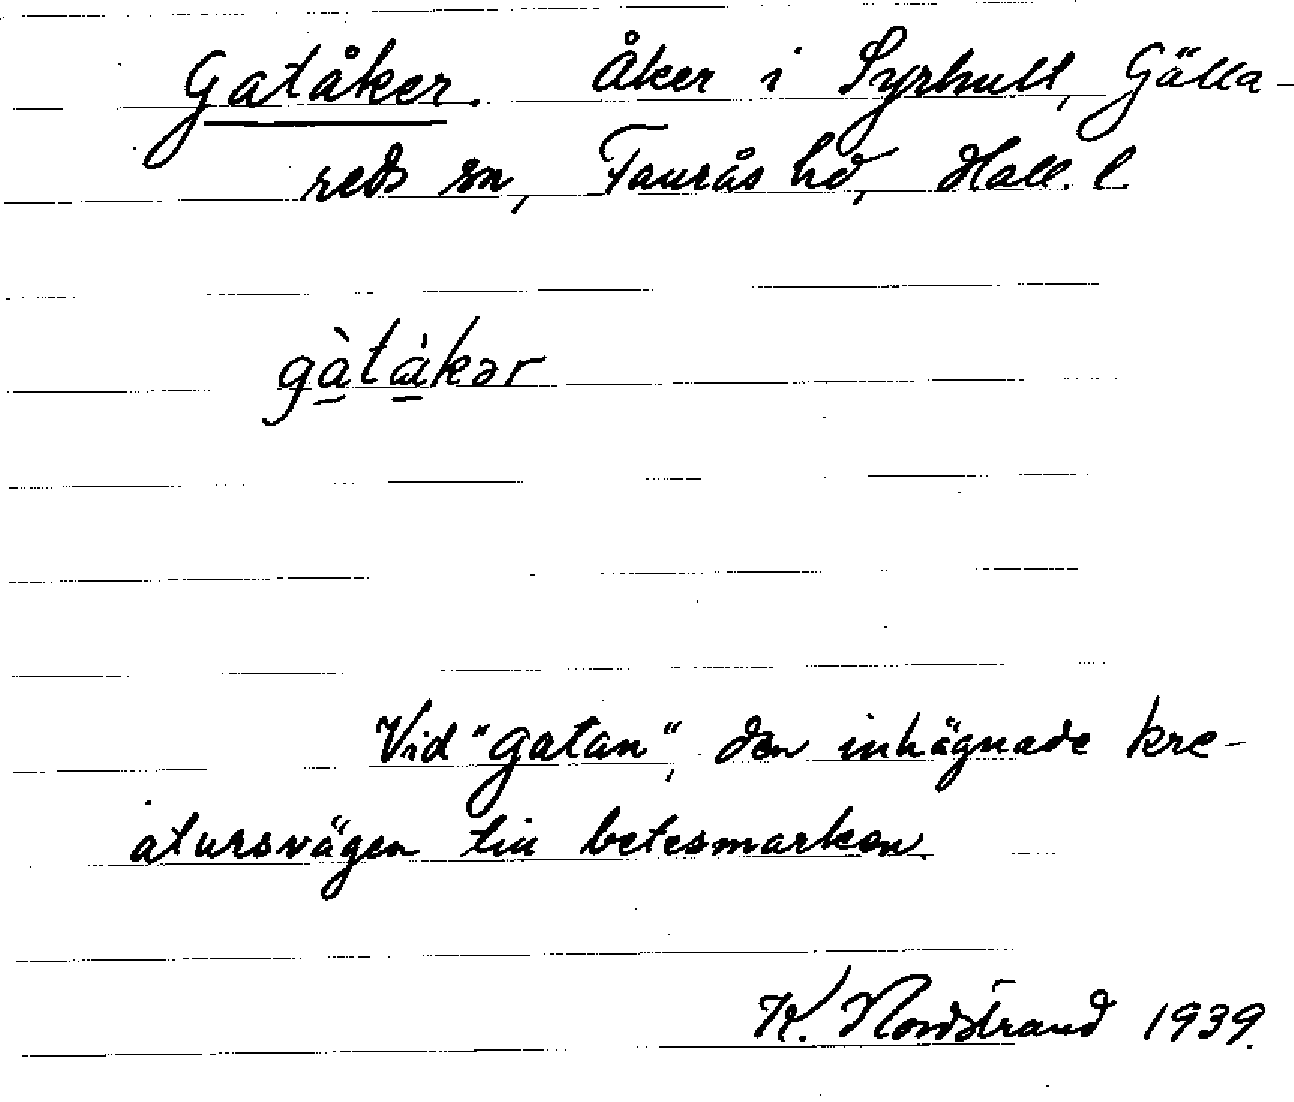 Gatåker. Åker i Syrhult, Gälla-
reds sn, Faurås hd, Hall. l.
gàtàkər
Vid "gatan", den inhägnade kre-
atursvägen till betesmarken.
K. Nordstrand 1939.